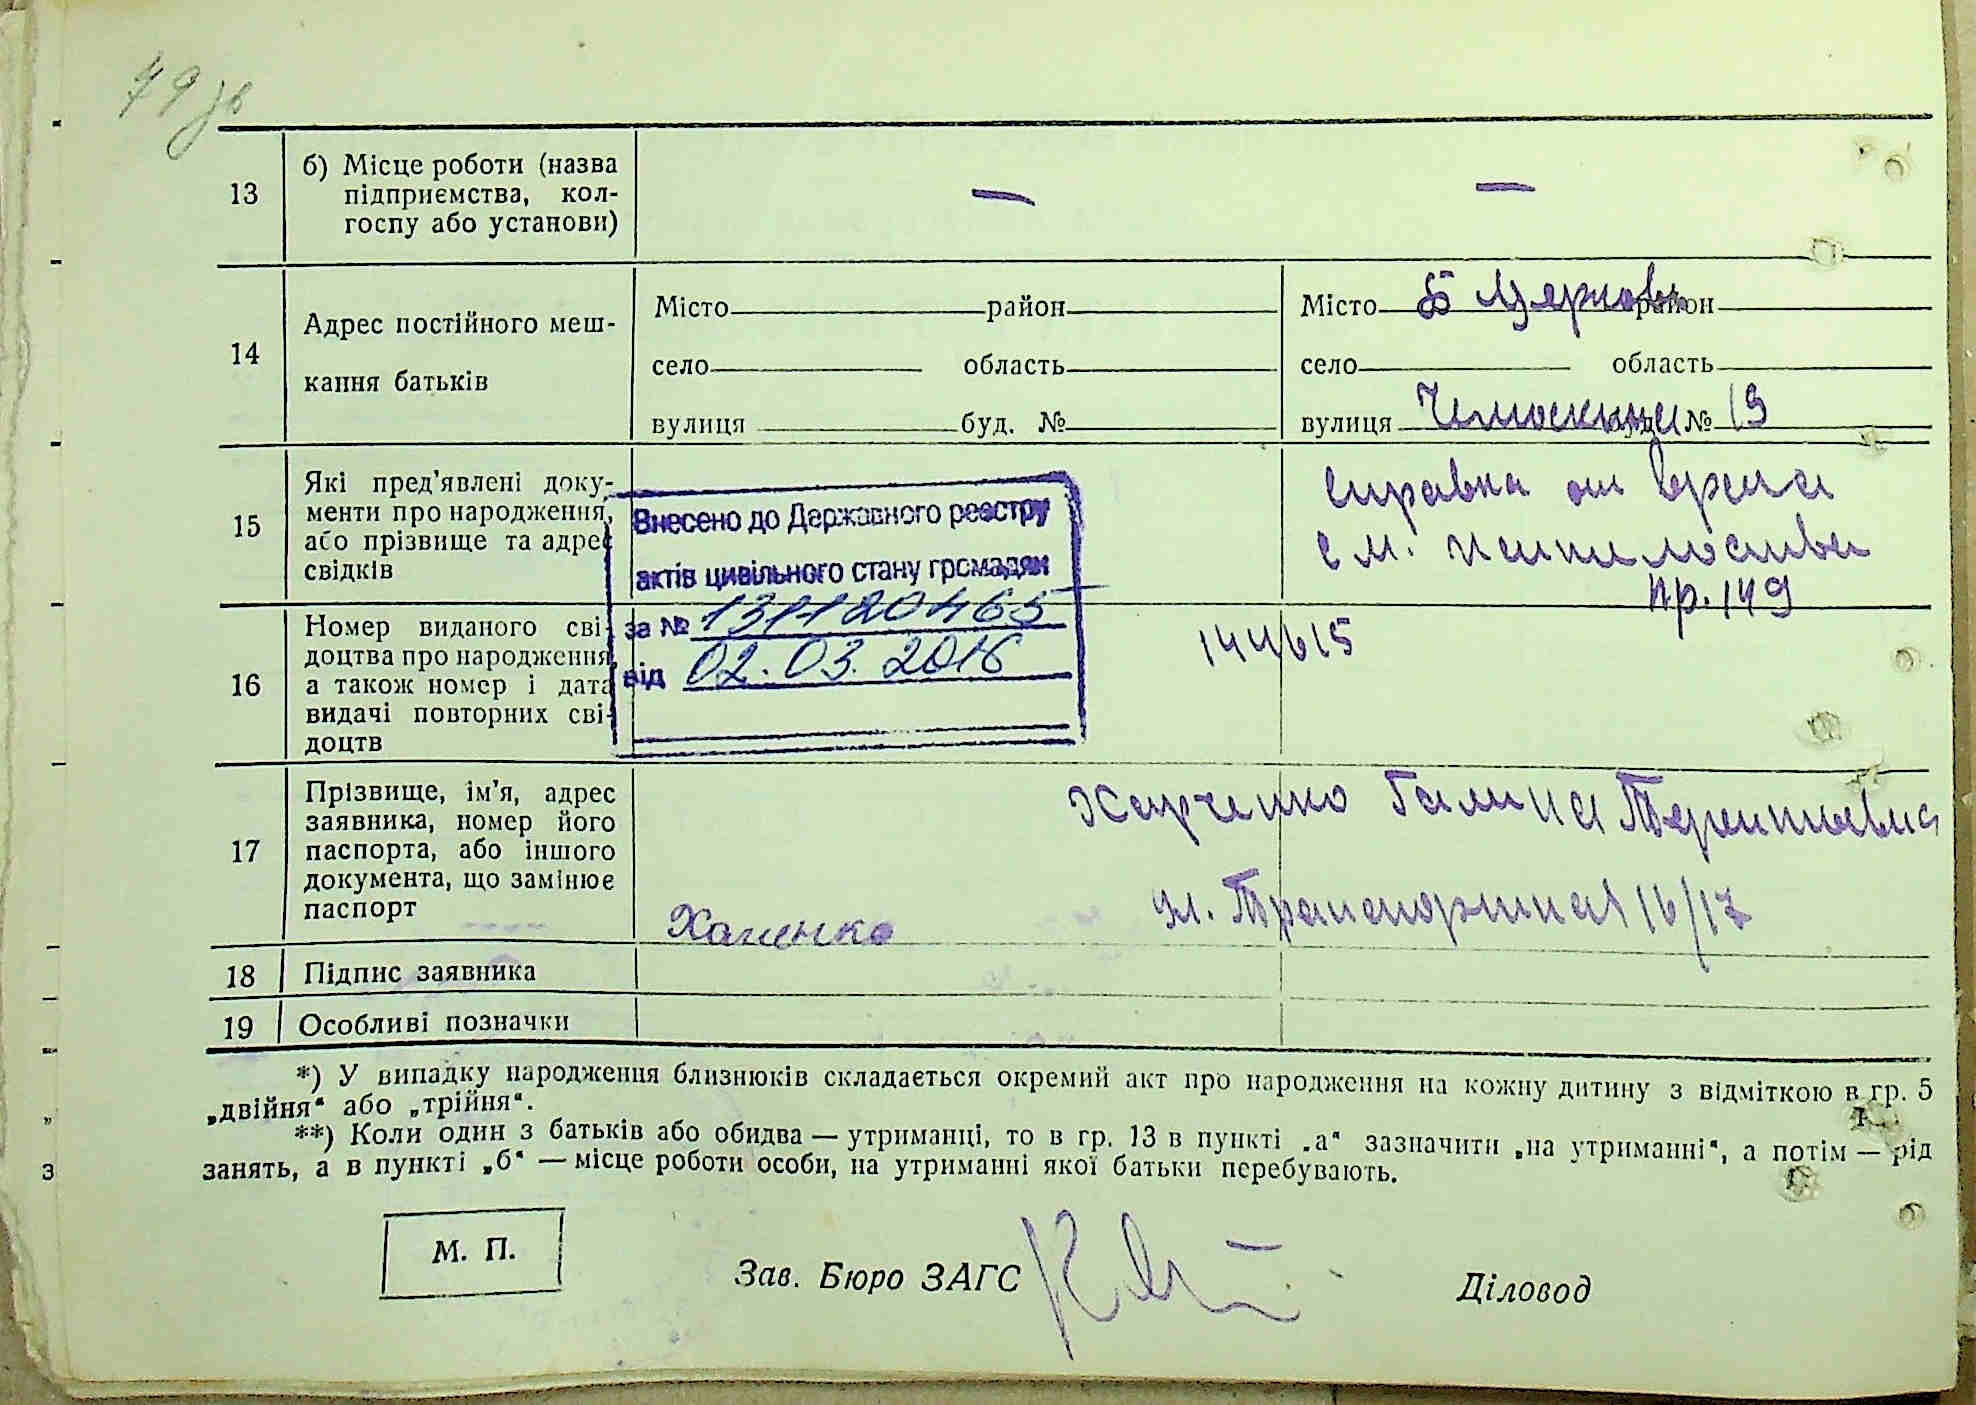 79 зв
13
б) Місце роботи (назва
підприємства, кол-
госпу або установи)
— —
14
Адрес постійного меш-
кання батьків
Місто район
село область
вулиця буд. №
Місто Б Церковь район
село область
вулиця № 19
15
Які пред'явлені доку-
менти про народження,
або прізвище та адрес
свідків
справка от врача
с м.
пр. 149
Внесено до Державного реєстру
актів цивільного стану громадян
за № 131120465
від 02.03.2016
16
Номер виданого сві-
доцтва про народження,
а також номер і дата
видачі повторних сві-
доцтв
144615
17
Прізвище, ім'я, адрес
заявника, номер його
паспорта, або іншого
документа, що замінює
паспорт
Харченко Галина Терентьевна
ул. Транспортная 16/17
18
Підпис заявника
19
Особливі позначки
*) У випадку народження близнюків складається окремий акт про народження на кожну дитину з відміткою в гр. 5
„двійня“ або „трійня“.
**) Коли один з батьків або обидва — утриманці, то в гр. 13 в пункті „а“ зазначити „на утриманні“, а потім — рід
занять, а в пункті „б“ — місце роботи особи, на утриманні якої батьки перебувають.
М. П.
Зав. Бюро ЗАГС
Діловод